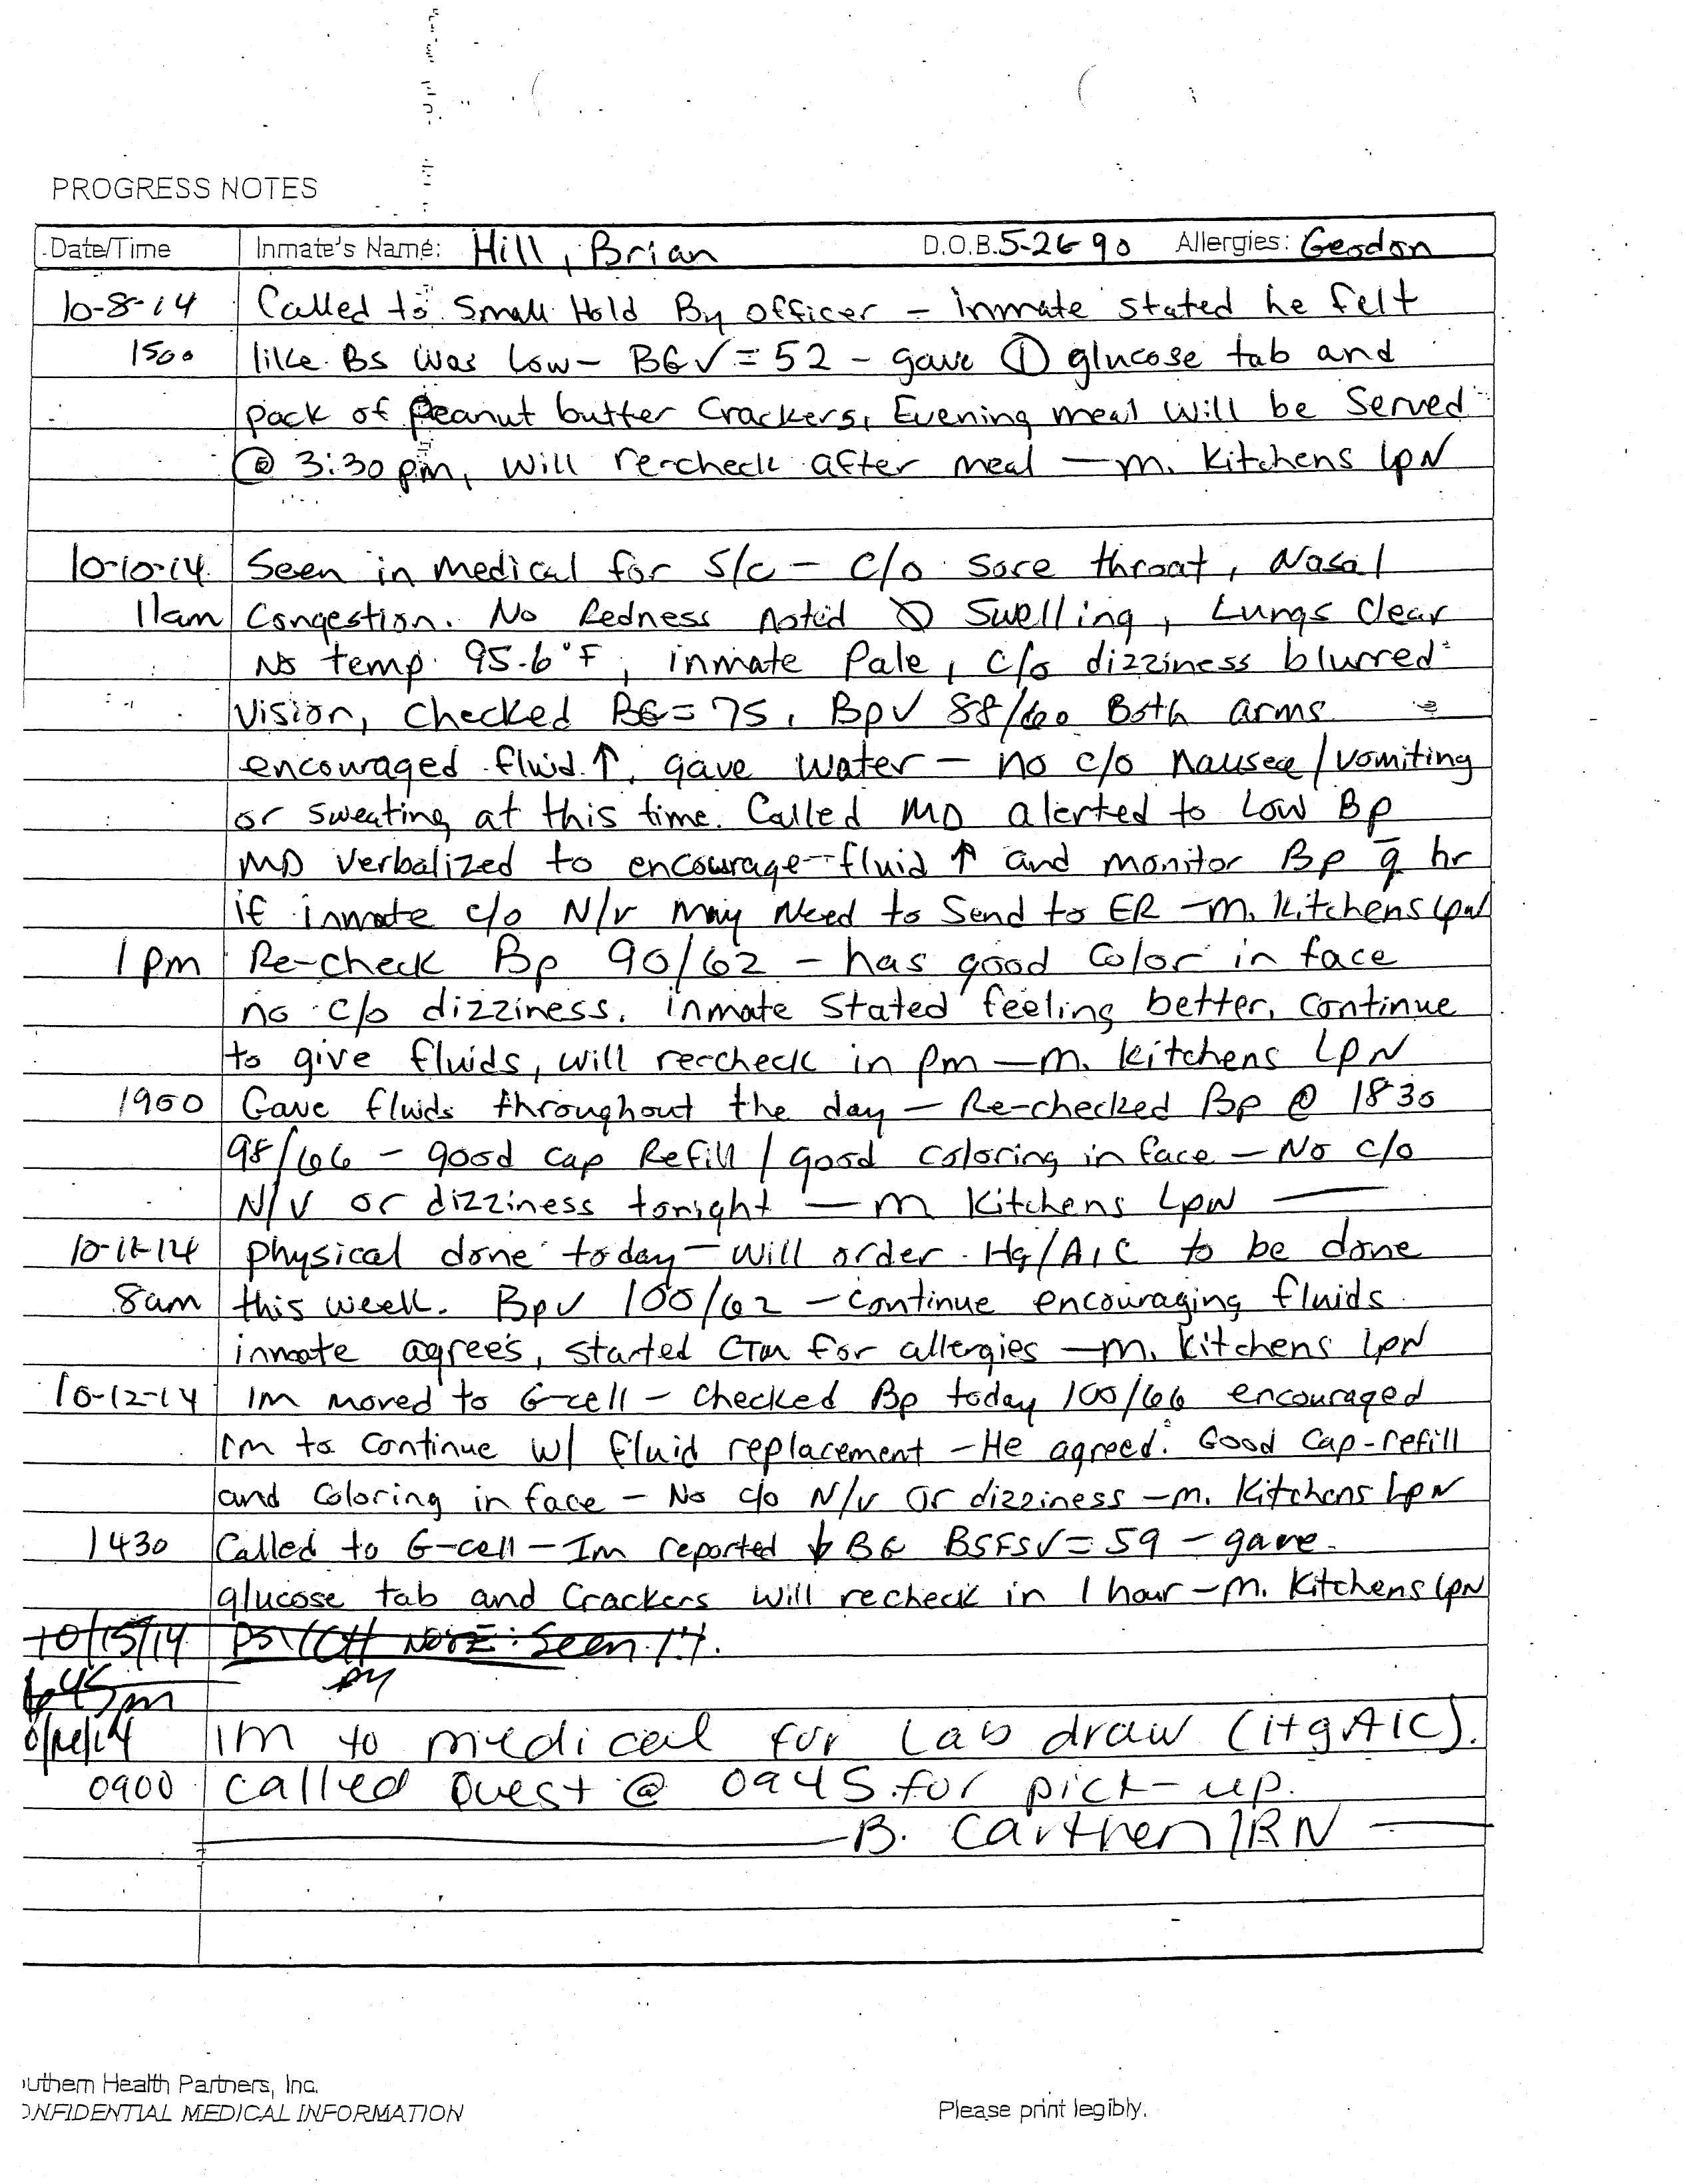 PROGRESS NOTES
Date/Time Inmate's Name: Hill, Brian D.O.B. 5-26-90 Allergies: Geodon
10-8-14 Called to Small Hold By officer - inmate stated he felt
1500 like BS was low - BG✓ = 52 - gave ① glucose tab and
pack of Peanut butter Crackers, Evening meal will be Served
@ 3:30 pm, will re-check after meal — M. Kitchens LPN
10-10-14 Seen in medical for S/C - C/O sore throat, Nasal
11am Congestion. No Redness noted Swelling, Lungs Clear
No temp 95.6°F, inmate Pale, C/o dizziness blurred
Vision, checked BG = 75, Bp✓ 88/60 Both arms
encouraged fluid ↑, gave water - no c/o nausea/vomiting
or sweating at this time. Called MD alerted to Low Bp
MD verbalized to encourage fluid ↑ and monitor Bp q̄ hr
if inmate c/o N/V may Need to Send to ER - M. Kitchens LPN
1pm Re-check Bp 90/62 - has good color in face
no c/o dizziness. inmate Stated feeling better, continue
to give fluids, will re-check in pm — M. Kitchens LPN
1900 Gave fluids throughout the day - Re-checked Bp @ 1830
98/66 - good cap Refill / good coloring in face - No c/o
N/V or dizziness tonight — M Kitchens LPN
10-11-14 physical done today - will order Hg/A1C to be done
8am this week. Bp✓ 100/62 - continue encouraging fluids
inmate agrees, started CTM for allergies — M. Kitchens LPN
10-12-14 IM moved to G-cell - checked Bp today 100/66 encouraged
Im to continue w/ fluid replacement - He agreed. Good Cap-refill
and coloring in face - No c/o N/V or dizziness - M. Kitchens LPN
1430 Called to G-cell - Im reported ↓ BG BSFS✓ = 59 - gave
glucose tab and Crackers will recheck in 1 hour - M. Kitchens LPN
10/15/14 PSYCH NOTE: Seen
645pm
IM to medical for Lab draw (HgA1C).
0900 called Quest @ 0945 for pick-up.
B. Carthen/RN
uthern Health Partners, Inc.
ONFIDENTIAL MEDICAL INFORMATION Please print legibly.